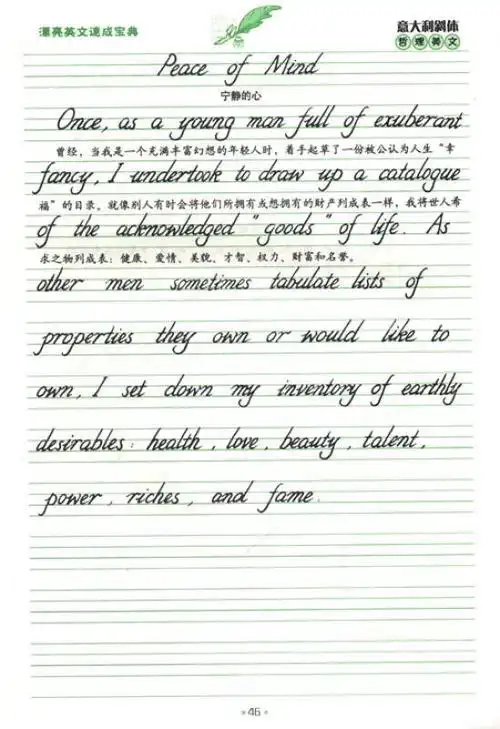 漂亮英文速成宝典
意大利斜体
哲理美文
Peace of Mind
宁静的心
Once, as a young man full of exuberant
曾经，当我是一个充满丰富幻想的年轻人时，着手起草了一份被公认为人生“幸
fancy, I undertook to draw up a catalogue
福”的目录。就像别人有时会将他们所拥有或想拥有的财产列成表一样，我将世人希
of the acknowledged "goods" of life. As
求之物列成表：健康、爱情、美貌、才智、权力、财富和名誉。
other men sometimes tabulate lists of
properties they own or would like to
own, I set down my inventory of earthly
desirables: health, love, beauty, talent,
power, riches, and fame.
46